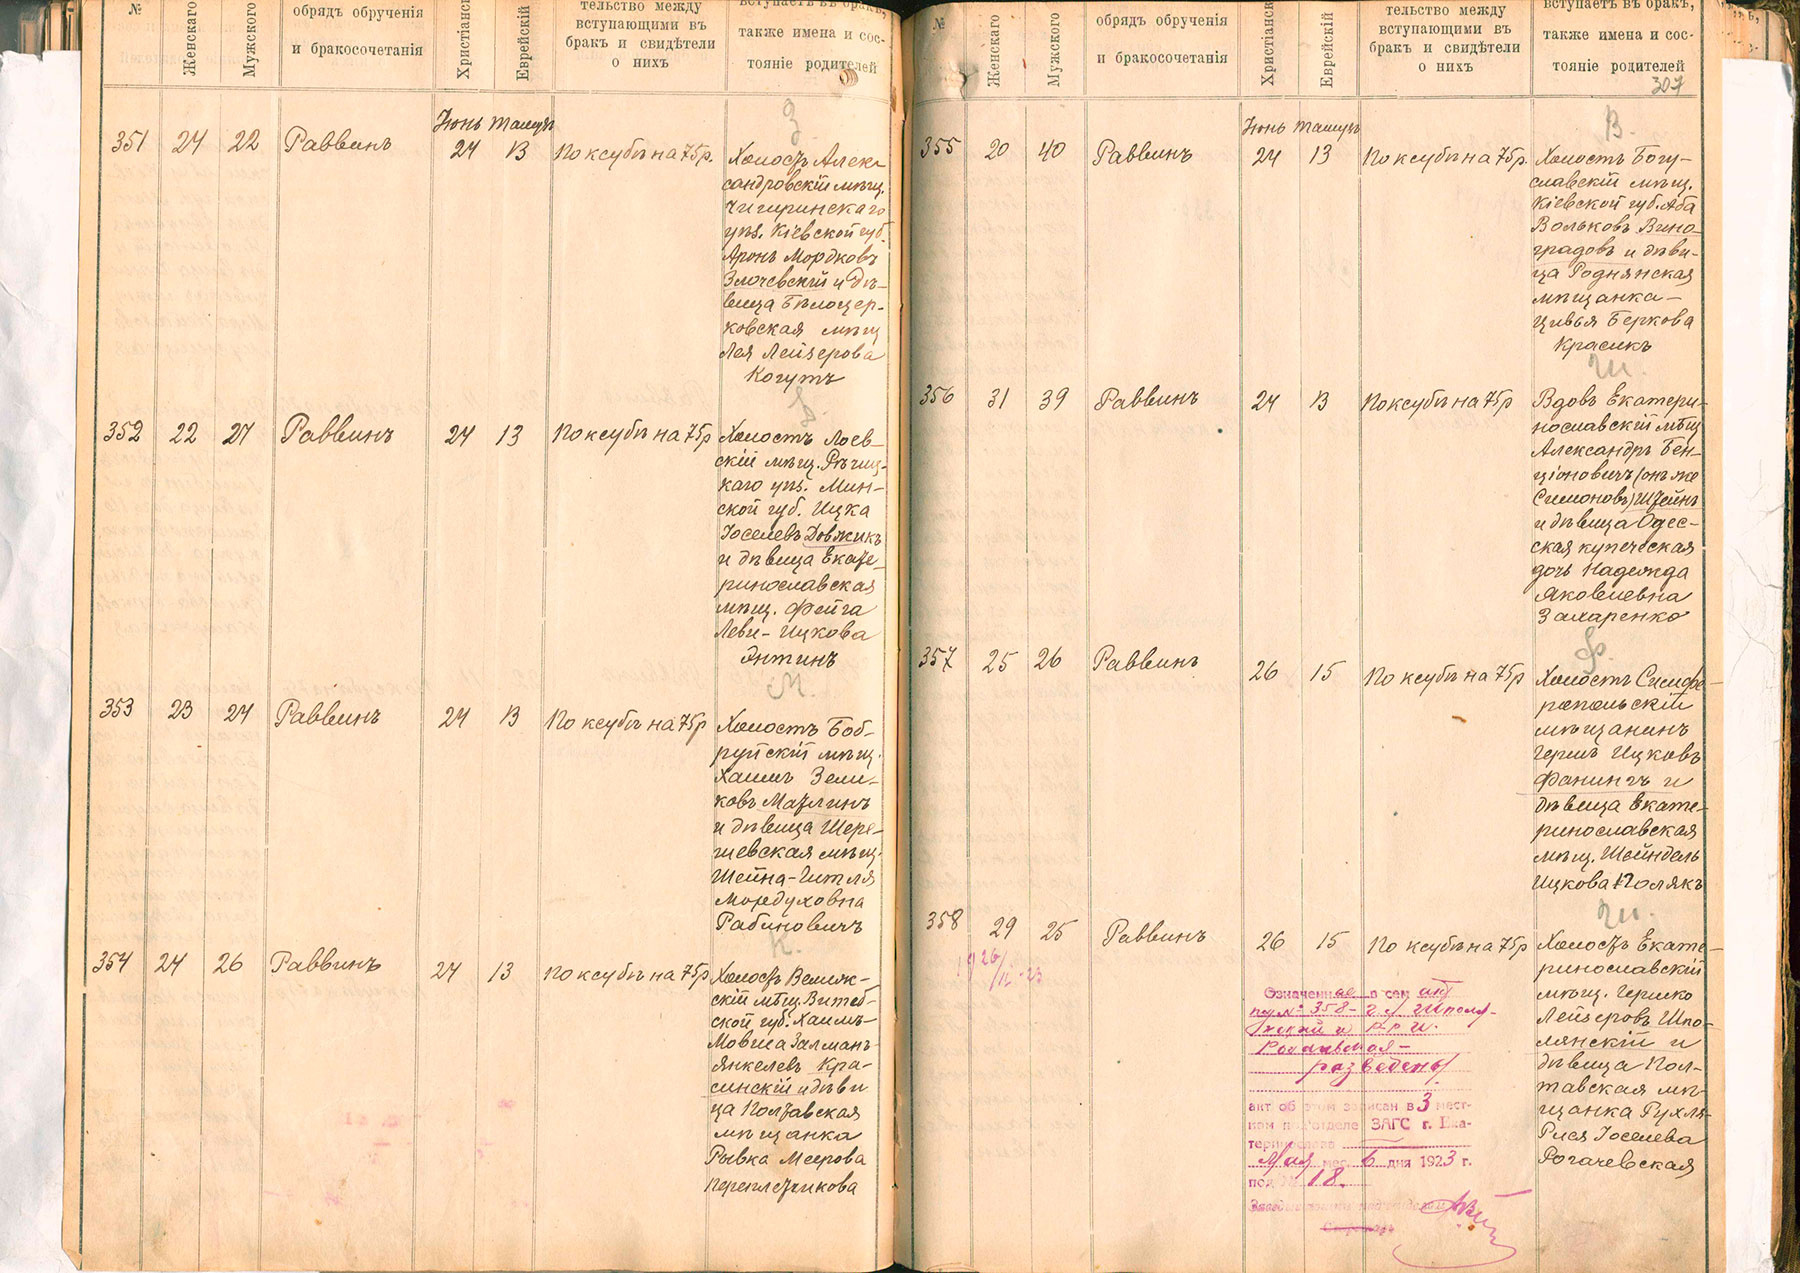 №
Женскаго
Мужского
обрядъ обрученія
и бракосочетанія
Христіанск
Еврейскій
тельство между
вступающими въ
бракъ и свидѣтели
о нихъ
вступаетъ въ бракъ,
также имена и сос-
тояніе родителей
Іюнь Тамузъ
З.
351 24 22 Раввинъ 24 13 По ксубѣ на 75р.
Холостъ Алек-
сандровскій мѣщ.
Чигиринскаго
уѣз. Кіевской губ.
Аронъ Мордковъ
Злочевскій и дѣ-
вица Бѣлоцер-
ковская мѣщ
Лея Лейзерова
Когутъ
Д.
352 22 27 Раввинъ 24 13 По ксубѣ на 75р
Холостъ Лоев-
скій мѣщ. Рѣчиц-
каго уѣз. Мин-
ской губ. Ицка
Іоселевъ Довжикъ
и дѣвица Екате-
ринославская
мѣщ. Фейга
Леви-Ицкова
Энтинъ
М.
353 23 24 Раввинъ 24 13 По ксубѣ на 75р
Холостъ Боб-
руйскій мѣщ.
Хаимъ Зели-
ковъ Мазлинъ
и дѣвица Шере-
шевская мѣщ.
Шейна-Гитля
Мордуховна
Рабиновичъ
К.
354 24 26 Раввинъ 24 13 По ксубѣ на 75р
Холостъ Велиж-
скій мѣщ. Витеб-
ской губ. Хаимъ-
Мовша Залманъ-
Янкелевъ Кра-
синскій и дѣви
ца Полтавская
мѣщанка
Рывка Меерова
Переплетчикова
№
Женскаго
Мужского
обрядъ обрученія
и бракосочетанія
Христіанск
Еврейскій
тельство между
вступающими въ
бракъ и свидѣтели
о нихъ
вступаетъ въ бракъ,
также имена и сос-
тояніе родителей
307
Іюнь Тамузъ
В.
355 20 40 Раввинъ 24 13 По ксубѣ на 75р.
Холостъ Богу-
славскій мѣщ.
Кіевской губ. Аба
Вольковъ Вино-
градовъ и дѣви-
ца Роднянская
мѣщанка-
Цивья Беркова
Красикъ
Ш.
356 31 39 Раввинъ 24 13 По ксубѣ на 75р
Вдовъ Екатери-
нославскій мѣщ
Александръ Бен-
ціоновичъ (онъ же
Симоновъ) Штейнъ
и дѣвица Одес-
ская купеческая
дочь Надежда
Яковлевна
Захаренко
Ф.
357 25 26 Раввинъ 26 15 По ксубѣ на 75р
Холостъ Симфе-
ропольскій
мѣщанинъ
Гершъ Ицковъ
Фанингъ и
дѣвица Екате-
ринославская
мѣщ. Шейндель
Ицкова Полякъ
Ш.
358 29 25 Раввинъ 26 15 По ксубѣ на 75р
Холостъ Екате-
ринославскій
мѣщ. Гершко
Лейзеровъ Шпо-
лянскій и
дѣвица Пол-
тавская мѣ-
щанка Рухля-
Рися Іоселева
Рогачевская
Означенные в сем акт
под № 358 - Г. Л. Шполя-
нский и Р. Р. И.
Рогачевская -
разведены
акт об этом записан в 3 мест-
ном подотделе ЗАГС г. Ека-
теринослава
Мая мес. 6 дня 1923 г.
под № 18.